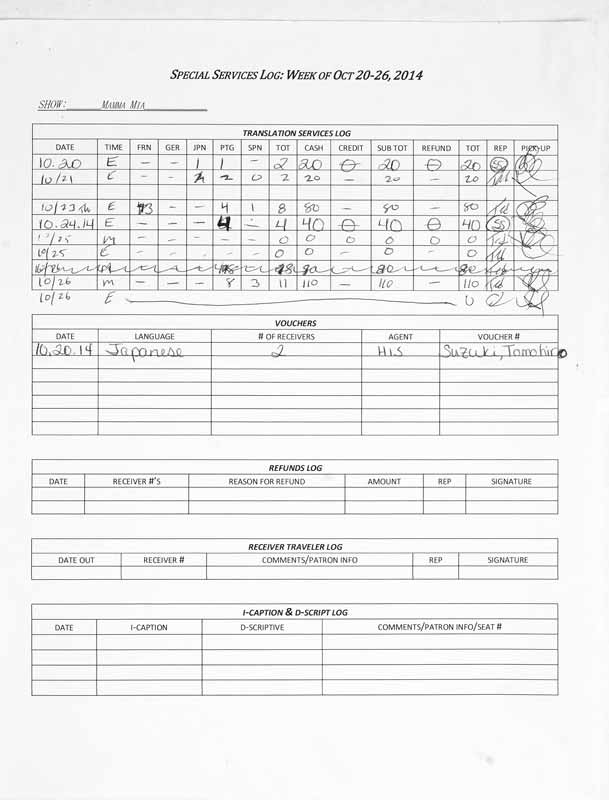 SPECIAL SERVICES LOG: WEEK OF OCT 20-26, 2014
SHOW: MAMMA MIA
TRANSLATION SERVICES LOG
DATE TIME FRN GER JPN PTG SPN TOT CASH CREDIT SUB TOT REFUND TOT REP PICK-UP
10.20 E – – 1 1 – 2 20 0 20 0 20
10/21 E – – 2 0 2 20 – 20 – 20
10/23 E 3 – – 4 1 8 80 – 80 – 80 Ted
10.24.14 E – – – 4 – 4 40 0 40 0 40
10/25 m – – – – – 0 0 0 0 0 0
10/25 E – – – – – 0 0 – 0 – 0
10/26 m – – – 8 3 11 110 – 110 – 110 Ted
10/26 E 0
VOUCHERS
DATE LANGUAGE # OF RECEIVERS AGENT VOUCHER #
10.20.14 Japanese 2 HIS Suzuki, Tomohiro
REFUNDS LOG
DATE RECEIVER #'S REASON FOR REFUND AMOUNT REP SIGNATURE
RECEIVER TRAVELER LOG
DATE OUT RECEIVER # COMMENTS/PATRON INFO REP SIGNATURE
I-CAPTION & D-SCRIPT LOG
DATE I-CAPTION D-SCRIPTIVE COMMENTS/PATRON INFO/SEAT #